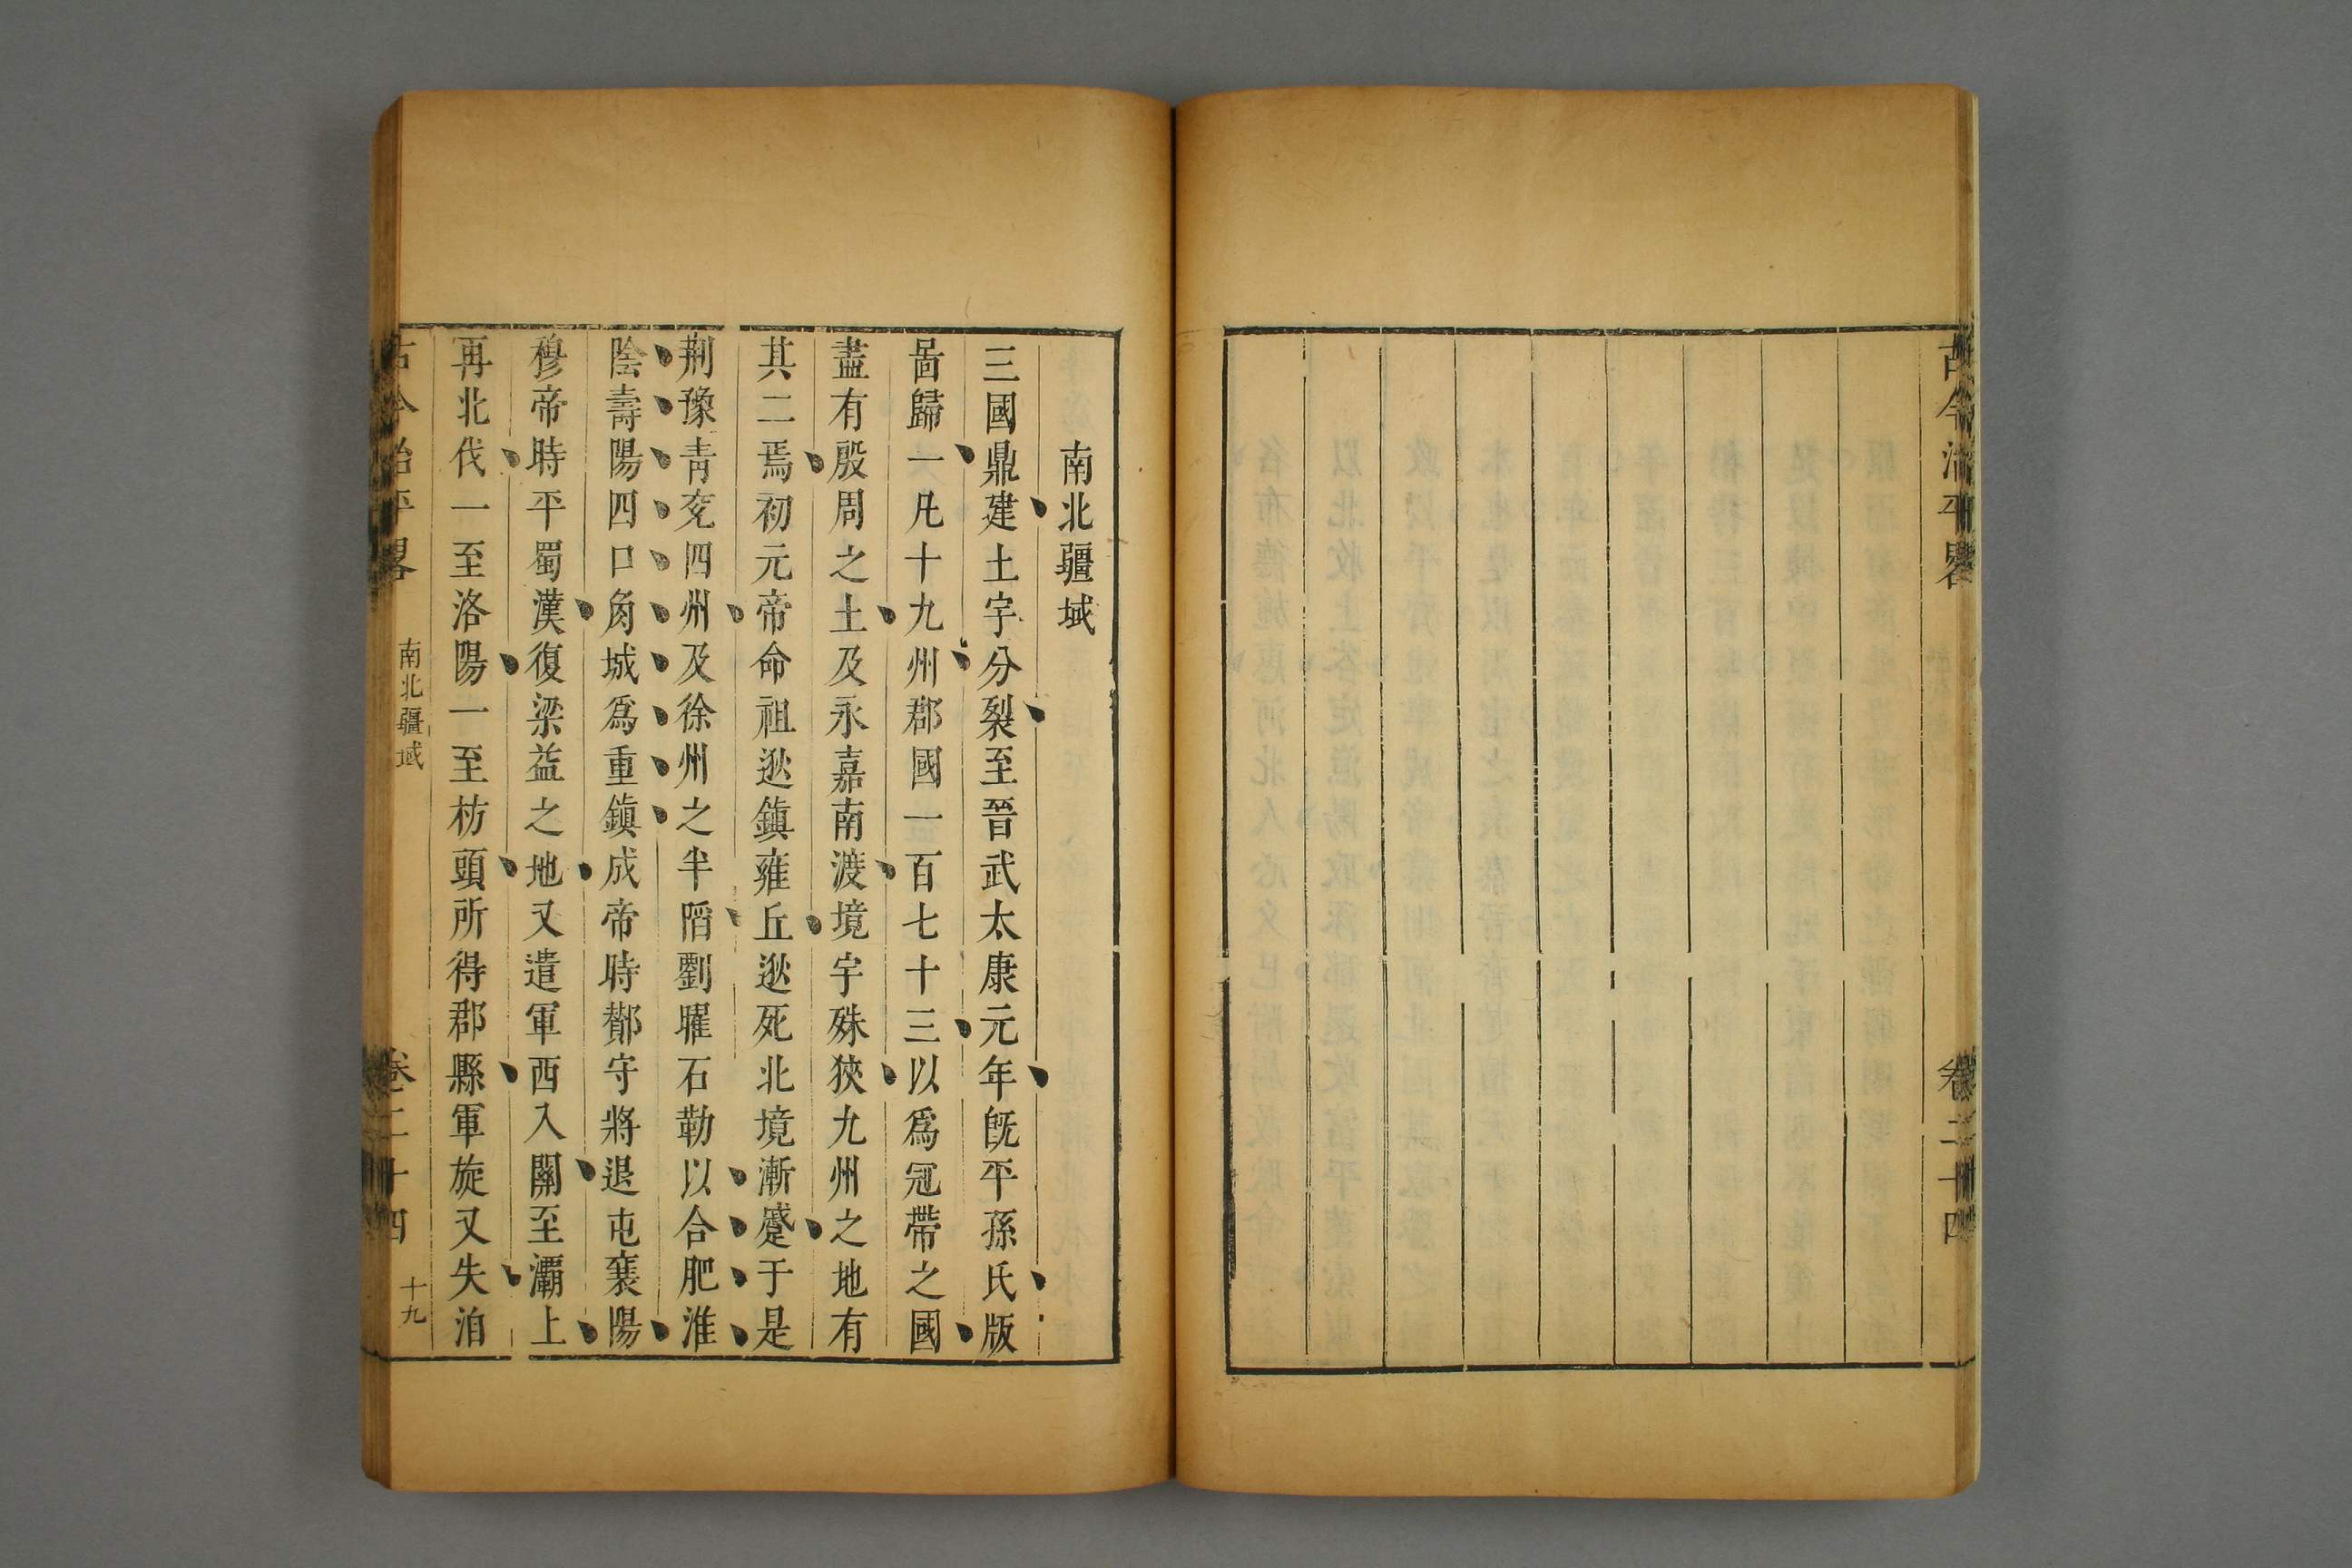 古今治平畧
卷二十四
南北疆域
三國鼎建土宇分裂至晉武太康元年旣平孫氏版
啚歸一凡十九州郡國一百七十三以爲冠帶之國
盡有殷周之土及永嘉南渡境宇殊狹九州之地有
其二焉初元帝命祖逖鎮雍丘逖死北境漸蹙于是
荆豫青兖四州及徐州之半陷劉曜石勒以合肥淮
陰壽陽四口角城爲重鎮成帝時鄼守將退屯襄陽
穆帝時平蜀漢復梁益之地又遣軍西入關至灞上
再北伐一至洛陽一至枋頭所得郡縣軍旋又失洎
古今治平畧
南北疆域
卷二十四
十九